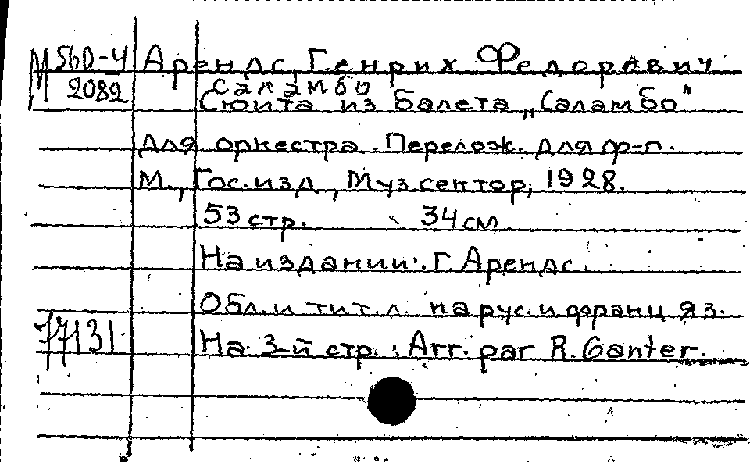 М 560-4
2082
Арендс, Генрих Федорович
Саламбо
Сюита из балета „Саламбо"
для оркестра. Перелож. для ф-п.
М., Гос. изд., Муз. сектор, 1928.
53 стр. 34 см.
На издании: Г. Арендс.
Обл. и тит. л. на рус. и франц. яз.
77131
На 3-й стр.: Arr. par R. Ganter.